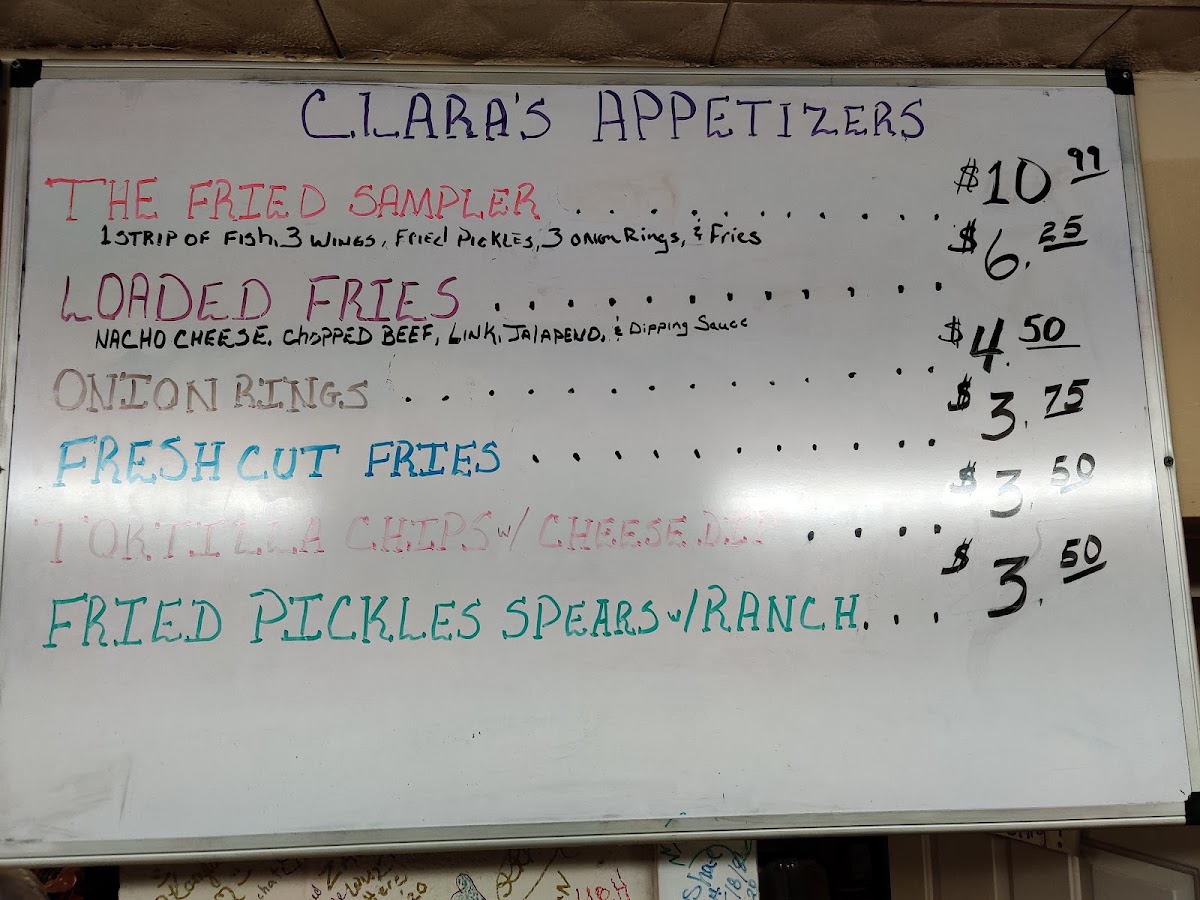 CLARA'S APPETIZERS
THE FRIED SAMPLER . . . . . . . . . . . $10 99
1 STRIP OF FISH, 3 WINGS, FRIED PICKLES, 3 ONION RINGS, & FRIES
LOADED FRIES . . . . . . . . . . . . $6.25
NACHO CHEESE, CHOPPED BEEF, LINK, JALAPENO, & DIPPING SAUCE
ONION RINGS . . . . . . . . . . . . . $4.50
FRESH CUT FRIES . . . . . . . . . . . $3.75
TORTILLA CHIPS w/ CHEESE DIP . . . . $3.50
FRIED PICKLES SPEARS w/ RANCH . . . $3.50